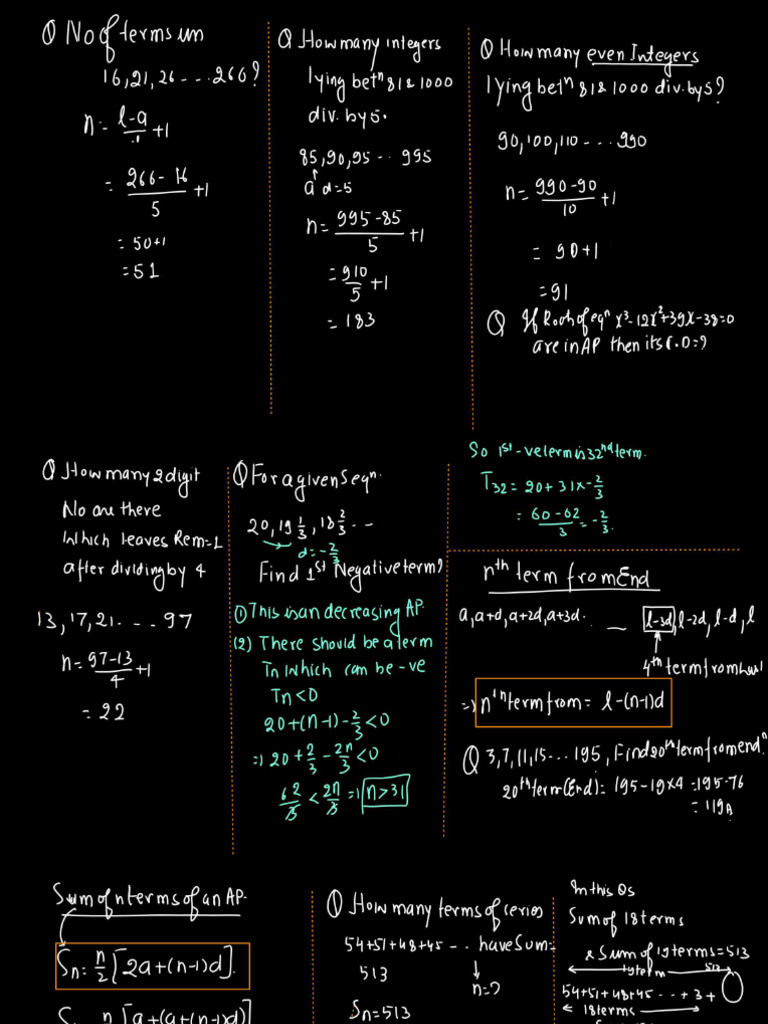 Q No of terms in
16, 21, 26 - - .. 266?
n = l-a/d +1
= 266-16/5 +1
= 50+1
= 51
Q How many integers
lying betⁿ 81 & 1000
div. by 5.
85, 90, 95 - - 995
a d=5
n = 995-85/5 +1
= 910/5 +1
= 183
Q How many even Integers
lying betⁿ 81 & 1000 div. by 5?
90, 100, 110 - - - 990
n = 990-90/10 +1
= 90+1
= 91
Q If Roots of eqⁿ x³-12x²+39x-38=0
are in AP then its C.D=?
Q How many 2 digit
No are there
Which leaves Rem=1
after dividing by 4
13, 17, 21 - - - 97
n = 97-13/4 +1
= 22
Q For a given Seqⁿ.
20, 19 1/3, 18 2/3 - - -
d = -2/3
Find 1st Negative term?
① This is an decreasing AP.
(2) There should be a term
Tn which can be -ve
Tn<0
20+(n-1)-2/3<0
⇒ 20+2/3-2n/3<0
62/3<2n/3 ⇒ n>31
So 1st -ve term is 32nd term.
T32 = 20+31x-2/3
= 60-62/3 = -2/3.
nth term from End
a, a+d, a+2d, a+3d. __ l-3d, l-2d, l-d, l
4th term from
⇒ nth term from = l-(n-1)d
Q 3, 7, 11, 15 - - . 195, Find 20th term from end.
20th term (End) = 195-19x4 = 195-76
= 119
Sum of n terms of an AP.
Sn = n/2 [2a+(n-1)d].
n [a+(a+(n-1)d)]
Q How many terms of series
54+51+48+45 - - .. have Sum =
513
n=?
Sn=513
In this Qs
Sum of 18 terms
& Sum of 19 terms = 513
19 term 513
54+51+48+45 - - .. +3+0
18 terms